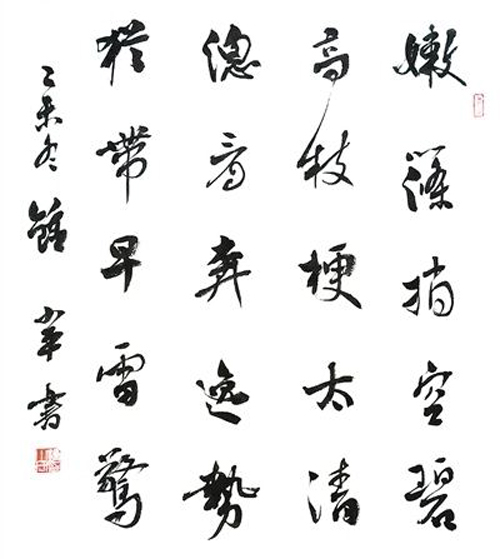 嫩篠捎空碧
高枝梗太清
總看奔逸勢
猶帶早雷驚
乙未冬 書